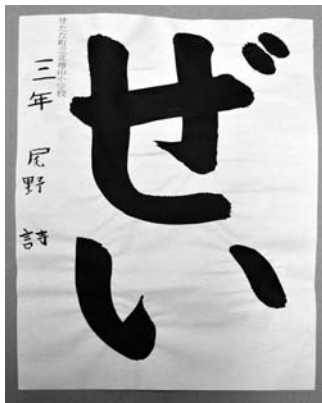 ぜい
せたな町立北檜山小学校
三年 尾野 詩